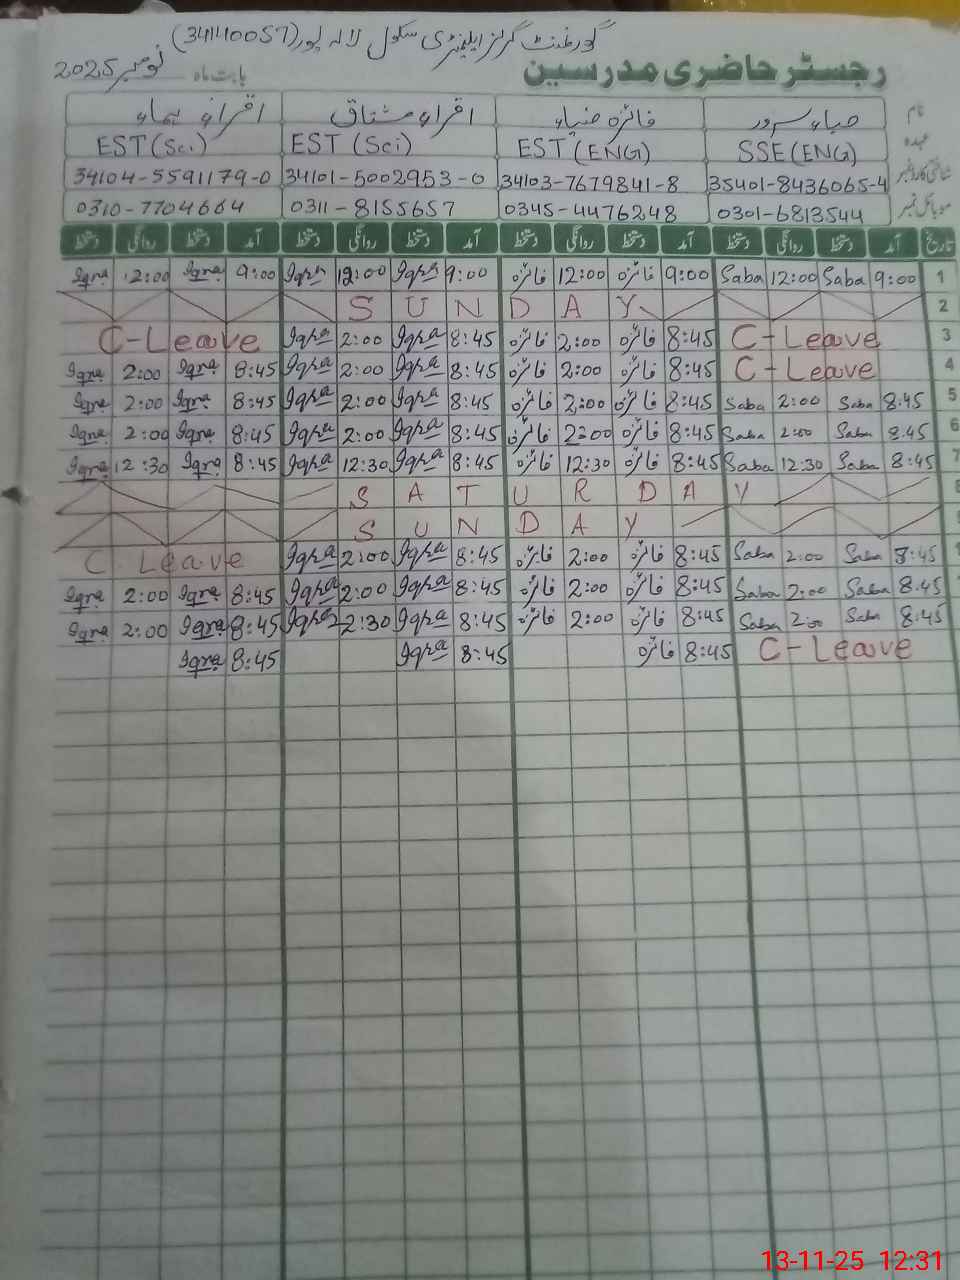 گورنمنٹ گرلز ایلیمنٹری سکول لالہ پور (34140057)
رجسٹر حاضری مدرسین بابت ماہ نومبر 2025
نام صباء سرور فائزہ ضیاء اقراء مشتاق اقراء
عہدہ SSE (ENG) EST (ENG) EST (Sci) EST (Sci)
شناختی کارڈ نمبر 35401-8436065-4 34103-7679841-8 34101-5002953-0 34104-5591179-0
موبائل نمبر 0301-6813544 0345-4476248 0311-8155657 0310-7704664
تاریخ آمد دستخط روانگی دستخط آمد دستخط روانگی دستخط آمد دستخط روانگی دستخط آمد دستخط روانگی دستخط
1 9:00 Saba 12:00 Saba 9:00 فائزہ 12:00 فائزہ 9:00 Iqra 12:00 Iqra 9:00 Iqra 12:00 Iqra
2 SUNDAY
3 C-Leave 8:45 فائزہ 2:00 فائزہ 8:45 Iqra 2:00 Iqra C-Leave
4 C-Leave 8:45 فائزہ 2:00 فائزہ 8:45 Iqra 2:00 Iqra 8:45 Iqra 2:00 Iqra
5 8:45 Saba 2:00 Saba 8:45 فائزہ 2:00 فائزہ 8:45 Iqra 2:00 Iqra 8:45 Iqra 2:00 Iqra
6 8:45 Saba 2:00 Saba 8:45 فائزہ 2:00 فائزہ 8:45 Iqra 2:00 Iqra 8:45 Iqra 2:00 Iqra
7 8:45 Saba 12:30 Saba 8:45 فائزہ 12:30 فائزہ 8:45 Iqra 12:30 Iqra 8:45 Iqra 12:30 Iqra
8 SATURDAY
SUNDAY
8:45 Saba 2:00 Saba 8:45 فائزہ 2:00 فائزہ 8:45 Iqra 2:00 Iqra C Leave
8:45 Saba 2:00 Saba 8:45 فائزہ 2:00 فائزہ 8:45 Iqra 2:00 Iqra 8:45 Iqra 2:00 Iqra
8:45 Saba 2:00 Saba 8:45 فائزہ 2:00 فائزہ 8:45 Iqra 2:30 Iqra 8:45 Iqra 2:00 Iqra
C-Leave 8:45 فائزہ 8:45 Iqra 8:45 Iqra
13-11-25 12:31